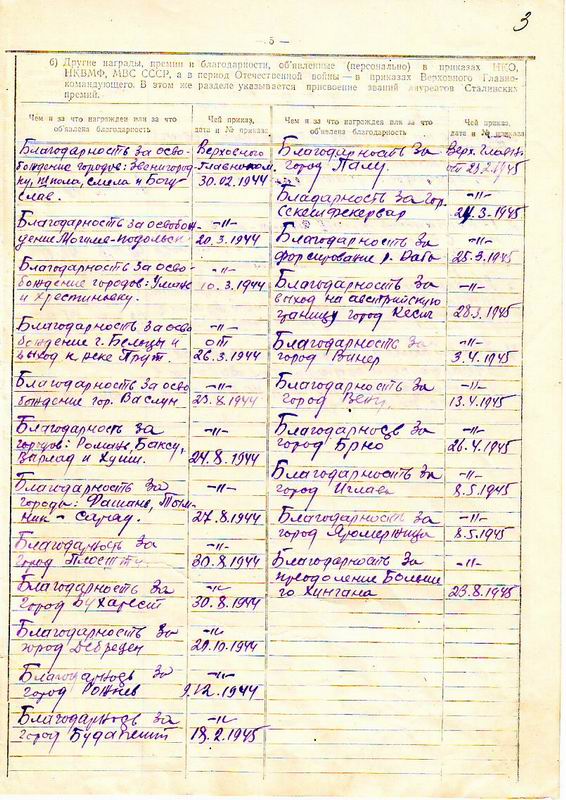 3
— 5 —
б) Другие награды, премии и благодарности, об'явленные (персонально) в приказах НКО,
НКВМФ, МВС СССР, а в период Отечественной войны — в приказах Верховного Главно-
командующего. В этом же разделе указывается присвоение званий лауреатов Сталинских
премий.
Чем и за что награжден или за что
об'явлена благодарность
Чей приказ,
дата и № приказа
Благодарность за осво-
бождение городов: Звенигород-
ку, Шпола, Смела и Богу-
слав.
Верховного
Главноком.
30.02.1944
Благодарность за освобож-
дение Могилев-Подольск
-"-
20.3.1944
Благодарность за осво-
бождение городов: Умань
и Хрестиновку.
-"-
10.3.1944
Благодарность за осво
бождение г. Бельцы и
выход к реке Прут.
-"-
от
26.3.1944
Благодарность за осво
бождение гор. Васлуи
-"-
23.8.1944
Благодарность за
городов: Романс, Бакеу,
Барлад и Хуши.
-"-
24.8.1944
Благодарность за
города: Фокшаны,
-"-
27.8.1944
Благодарность за
город Плоешти
-"-
30.8.1944
Благодарность за
город Бухарест
-"-
30.8.1944
Благодарность за
город Дебрецен
-"-
20.10.1944
Благодарность за
город
-"-
9.12.1944
Благодарность за
город Будапешт
-"-
13.2.1945
Чем и за что награжден или за что
об'явлена благодарность
Чей приказ,
дата и № приказа
Благодарность за
город Папу.
Верх. Главн.
от 23.2.1945
Благодарность за гор.
Секешфекервар
-"-
24.3-1945
Благодарность за
форсирование р. Раба
-"-
25.3.1945
Благодарность за
выход на австрийскую
границу город Кесег
-"-
28.3.1945
Благодарность за
город Винер
-"-
3.4.1945
Благодарность за
город Вену.
-"-
13.4.1945
Благодарность за
город Брно
-"-
26.4.1945
Благодарность за
город Иглава
-"-
8.5.1945
Благодарность за
город Яромержица
-"-
8.5.1945
Благодарность за
преодоление Больше
го Хингана
-"-
23.8.1945